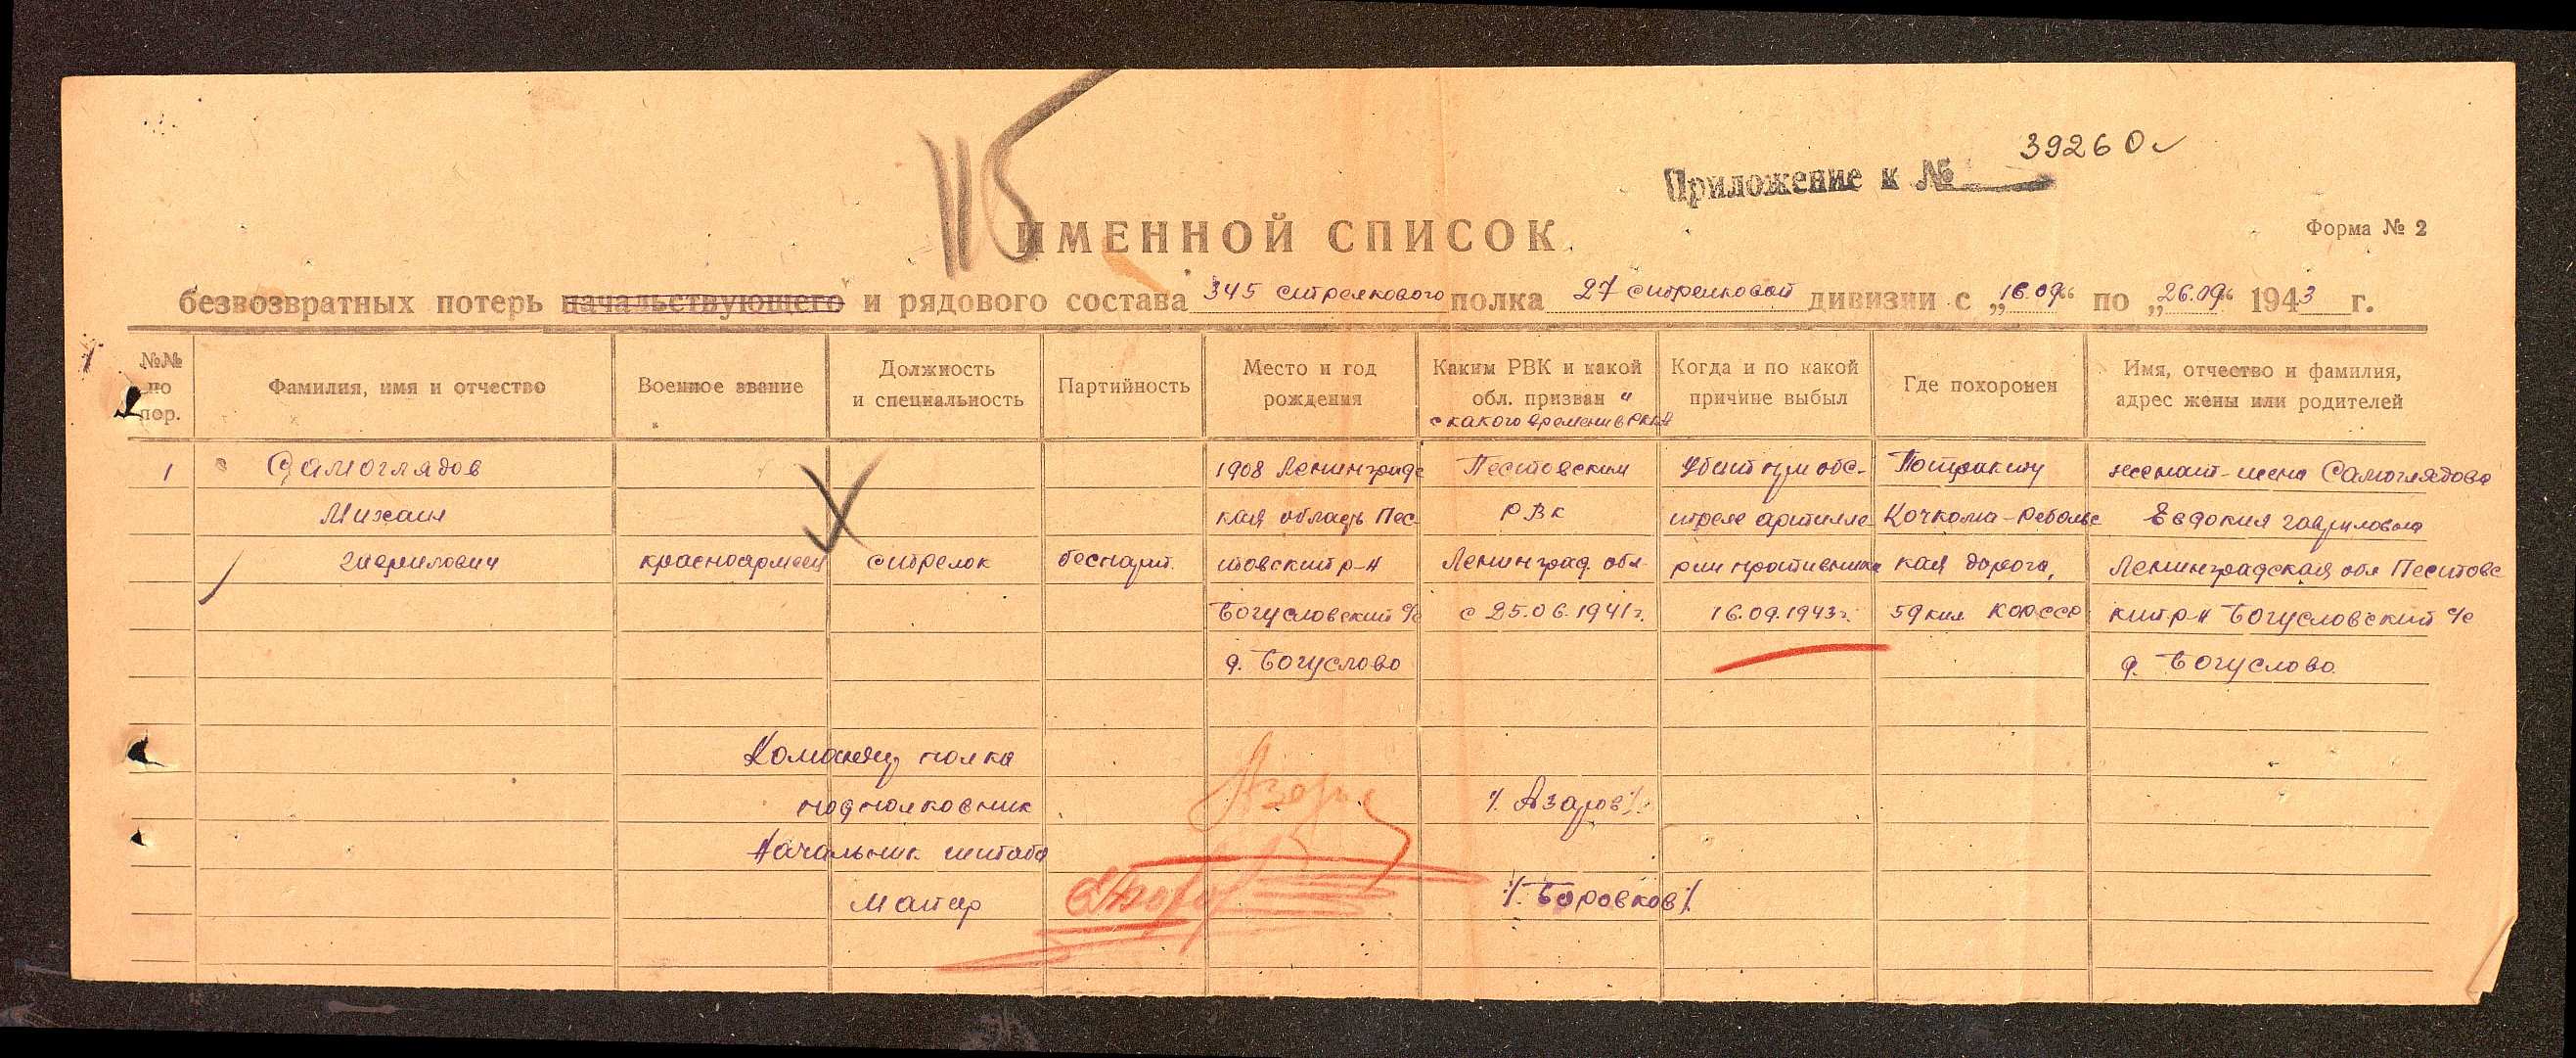 115
39260
Приложение к №
ИМЕННОЙ СПИСОК
Форма № 2
безвозвратных потерь начальствующего и рядового состава 345 стрелкового полка 27 стрелковой дивизии с „16.09" по „26.09" 1943 г.
№№ по пор.
Фамилия, имя и отчество
Военное звание
Должность и специальность
Партийность
Место и год рождения
Каким РВК и какой обл. призван и с какого времени в РККА
Когда и по какой причине выбыл
Где похоронен
Имя, отчество и фамилия, адрес жены или родителей
1 Самоглядов 1908 Ленинградс Пестовским Убит при обс- женат-жена Самоглядова
Михаил кая область Пес- РВК треле артилле- Кочкома-Ребольс Евдокия Гавриловна
Гаврилович красноармеец стрелок беспарт. товский р-н Ленинград. обл рии противника кая дорога, Ленинградская обл Пестовс
Богусловский с/с с 25.06.1941г. 16.09.1943г. 59 клм КФССР кий р-н Богусловский с/с
д. Богуслово д. Богуслово
Команд полка
подполковник /Азаров/
Начальник штаба
Майор /Боровков/